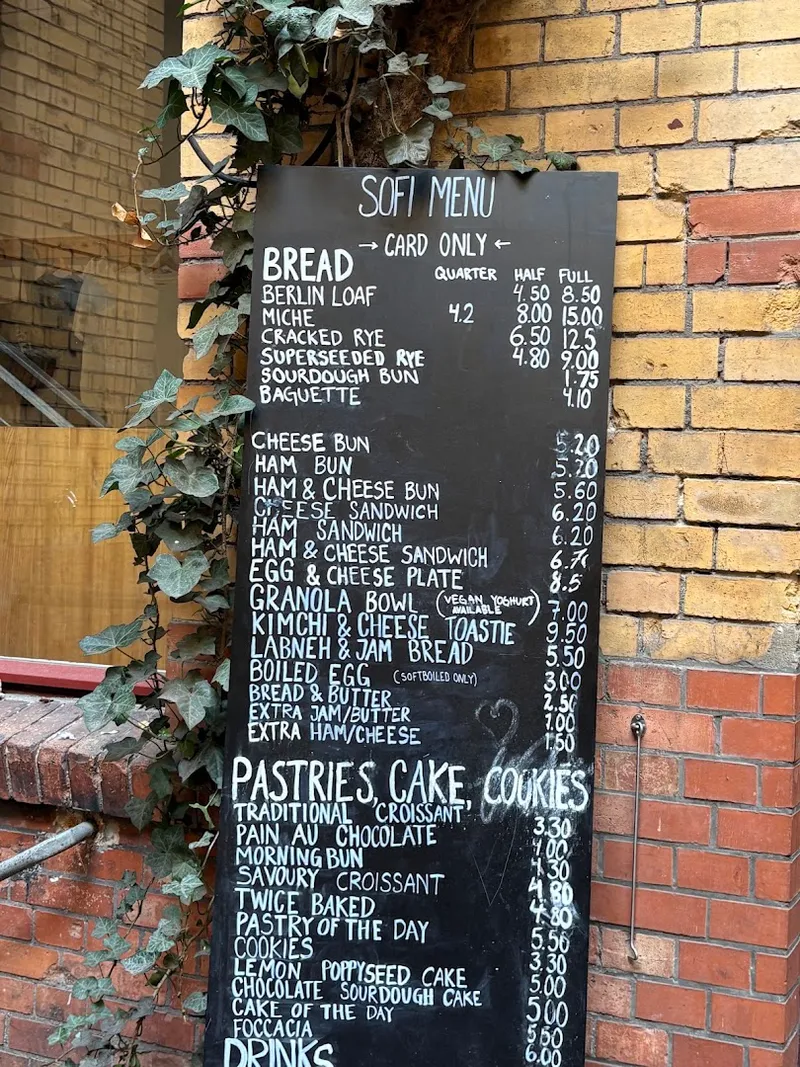 SOFI MENU
→ CARD ONLY ←
BREAD QUARTER HALF FULL
BERLIN LOAF 4.50 8.50
MICHE 4.2 8.00 15.00
CRACKED RYE 6.50 12.5
SUPERSEEDED RYE 4.80 9.00
SOURDOUGH BUN 1.75
BAGUETTE 4.10
CHEESE BUN 5.20
HAM BUN 5.20
HAM & CHEESE BUN 5.60
CHEESE SANDWICH 6.20
HAM SANDWICH 6.20
HAM & CHEESE SANDWICH
EGG & CHEESE PLATE 8.5
GRANOLA BOWL (VEGAN YOGHURT AVAILABLE) 7.00
KIMCHI & CHEESE TOASTIE 9.50
LABNEH & JAM BREAD 5.50
BOILED EGG (SOFTBOILED ONLY) 3.00
BREAD & BUTTER 2.50
EXTRA JAM/BUTTER 1.00
EXTRA HAM/CHEESE 1.50
PASTRIES, CAKE, COOKIES
TRADITIONAL CROISSANT 3.30
PAIN AU CHOCOLATE 4.00
MORNING BUN 4.30
SAVOURY CROISSANT 4.80
TWICE BAKED 4.80
PASTRY OF THE DAY 5.50
COOKIES 3.30
LEMON POPPYSEED CAKE 5.00
CHOCOLATE SOURDOUGH CAKE 5.00
CAKE OF THE DAY 5.50
FOCCACIA 6.00
DRINKS